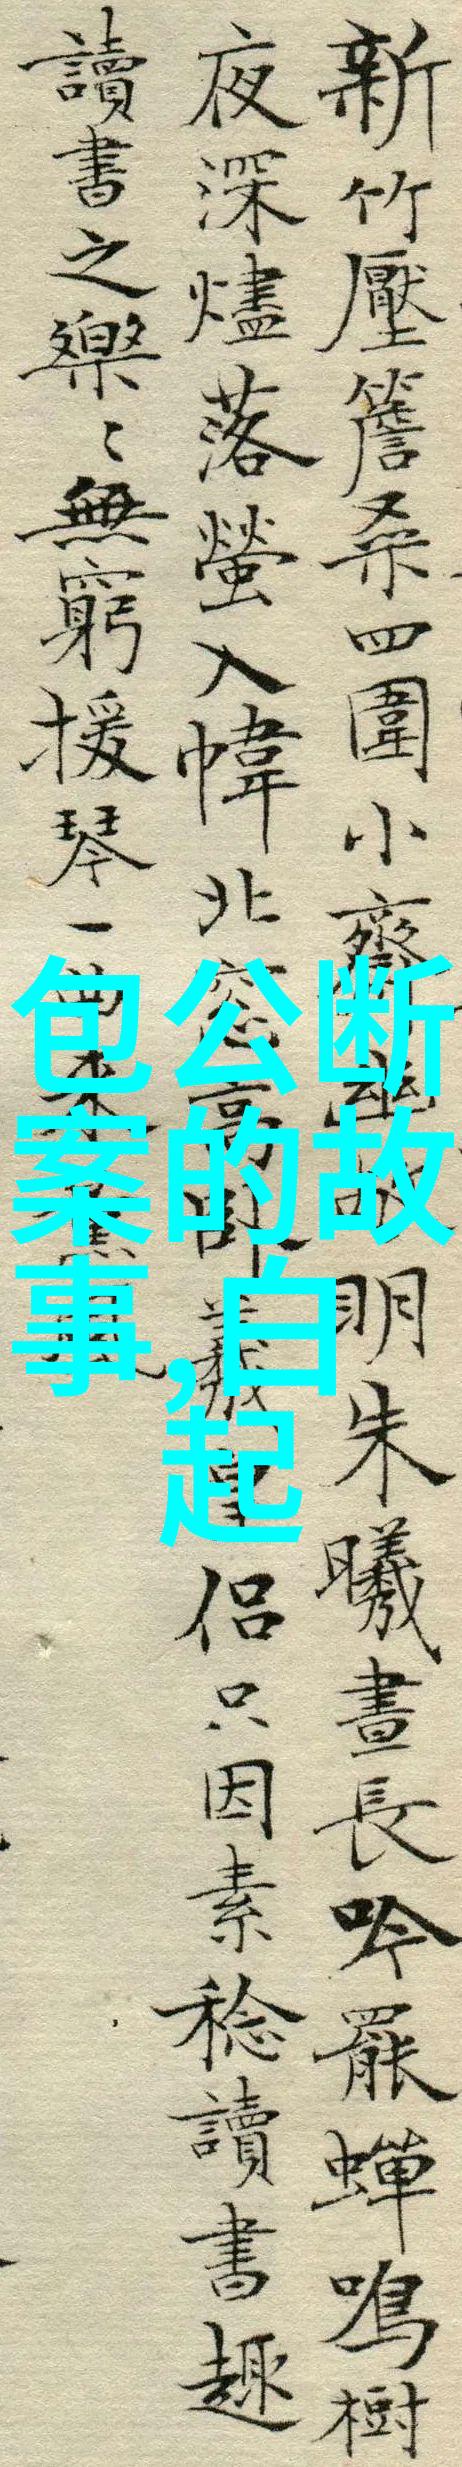 新竹壓簷桑四圍小齋幽敞明朱曦晝長吟罷蟬鳴樹
夜深燼落螢入幃北窓高臥羲皇侶只因素稔讀書趣
讀書之樂〻無窮援琴一曲來薰風
包公断
案的故
事,白
起